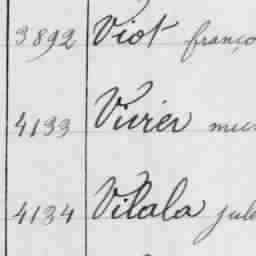 3892 Viot franço
4133 Vivier
4134 Vilala jule